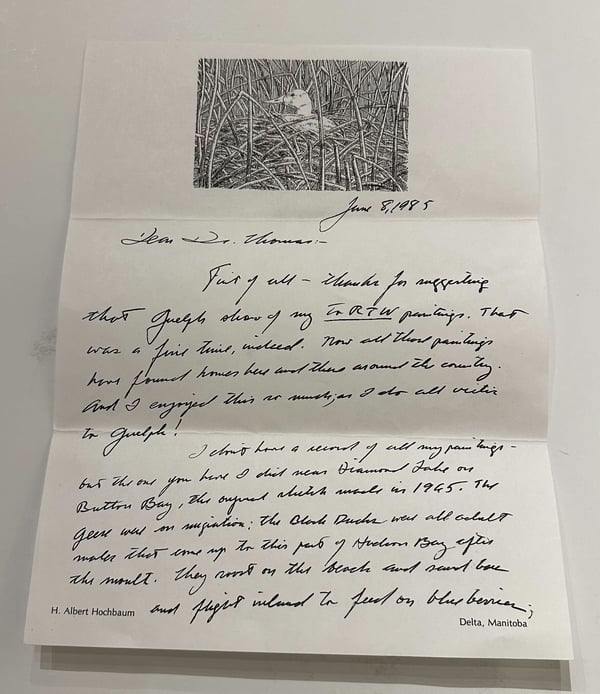 June 8, 1985
Dear Dr. Thomas:-
First of all - thanks for suggesting
that Guelph show of my To RTW paintings. That
was a fine time, indeed. Now all those paintings
have found homes here and there around the country.
And I enjoyed this so much, as I do all visits
to Guelph!
I don't have a record of all my paintings -
but the one you have I did near Diamond Lake on
Button Bay, the original sketch made in 1965. The
Geese were on migration; the Black Ducks were all adult
males that come up to this part of Hudson Bay after
the moult. They roost on the beach and sand bar
and flight inland to feed on blueberries;
H. Albert Hochbaum
Delta, Manitoba